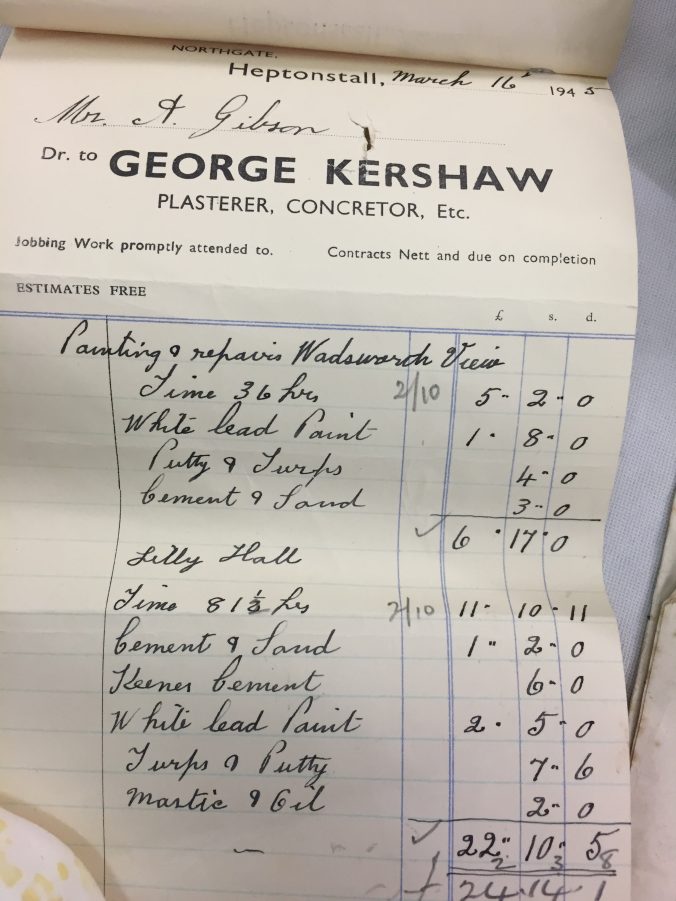 NORTHGATE,
Heptonstall, March 16 1945
Mr. A. Gibson
Dr. to GEORGE KERSHAW
PLASTERER, CONCRETOR, Etc.
Jobbing Work promptly attended to. Contracts Nett and due on completion
ESTIMATES FREE
£ s. d.
Painting & repairs Wadsworth View
Time 36 hrs 2/10 5 - 2 - 0
White lead Paint 1 - 8 - 0
Putty & Turps 4 - 0
Cement & Sand 3 - 0
✓ 6 - 17 - 0
Lilly Hall
Time 81 1/2 hrs 2/10 11 - 10 - 11
Cement & Sand 1 " 2 - 0
Keenes Cement 6 - 0
White lead Paint 2 - 5 - 0
Turps & Putty 7 - 6
Mastic & Oil 2 - 0
✓ 22 " 10 - 5
2 3 8
24 - 14 - 1